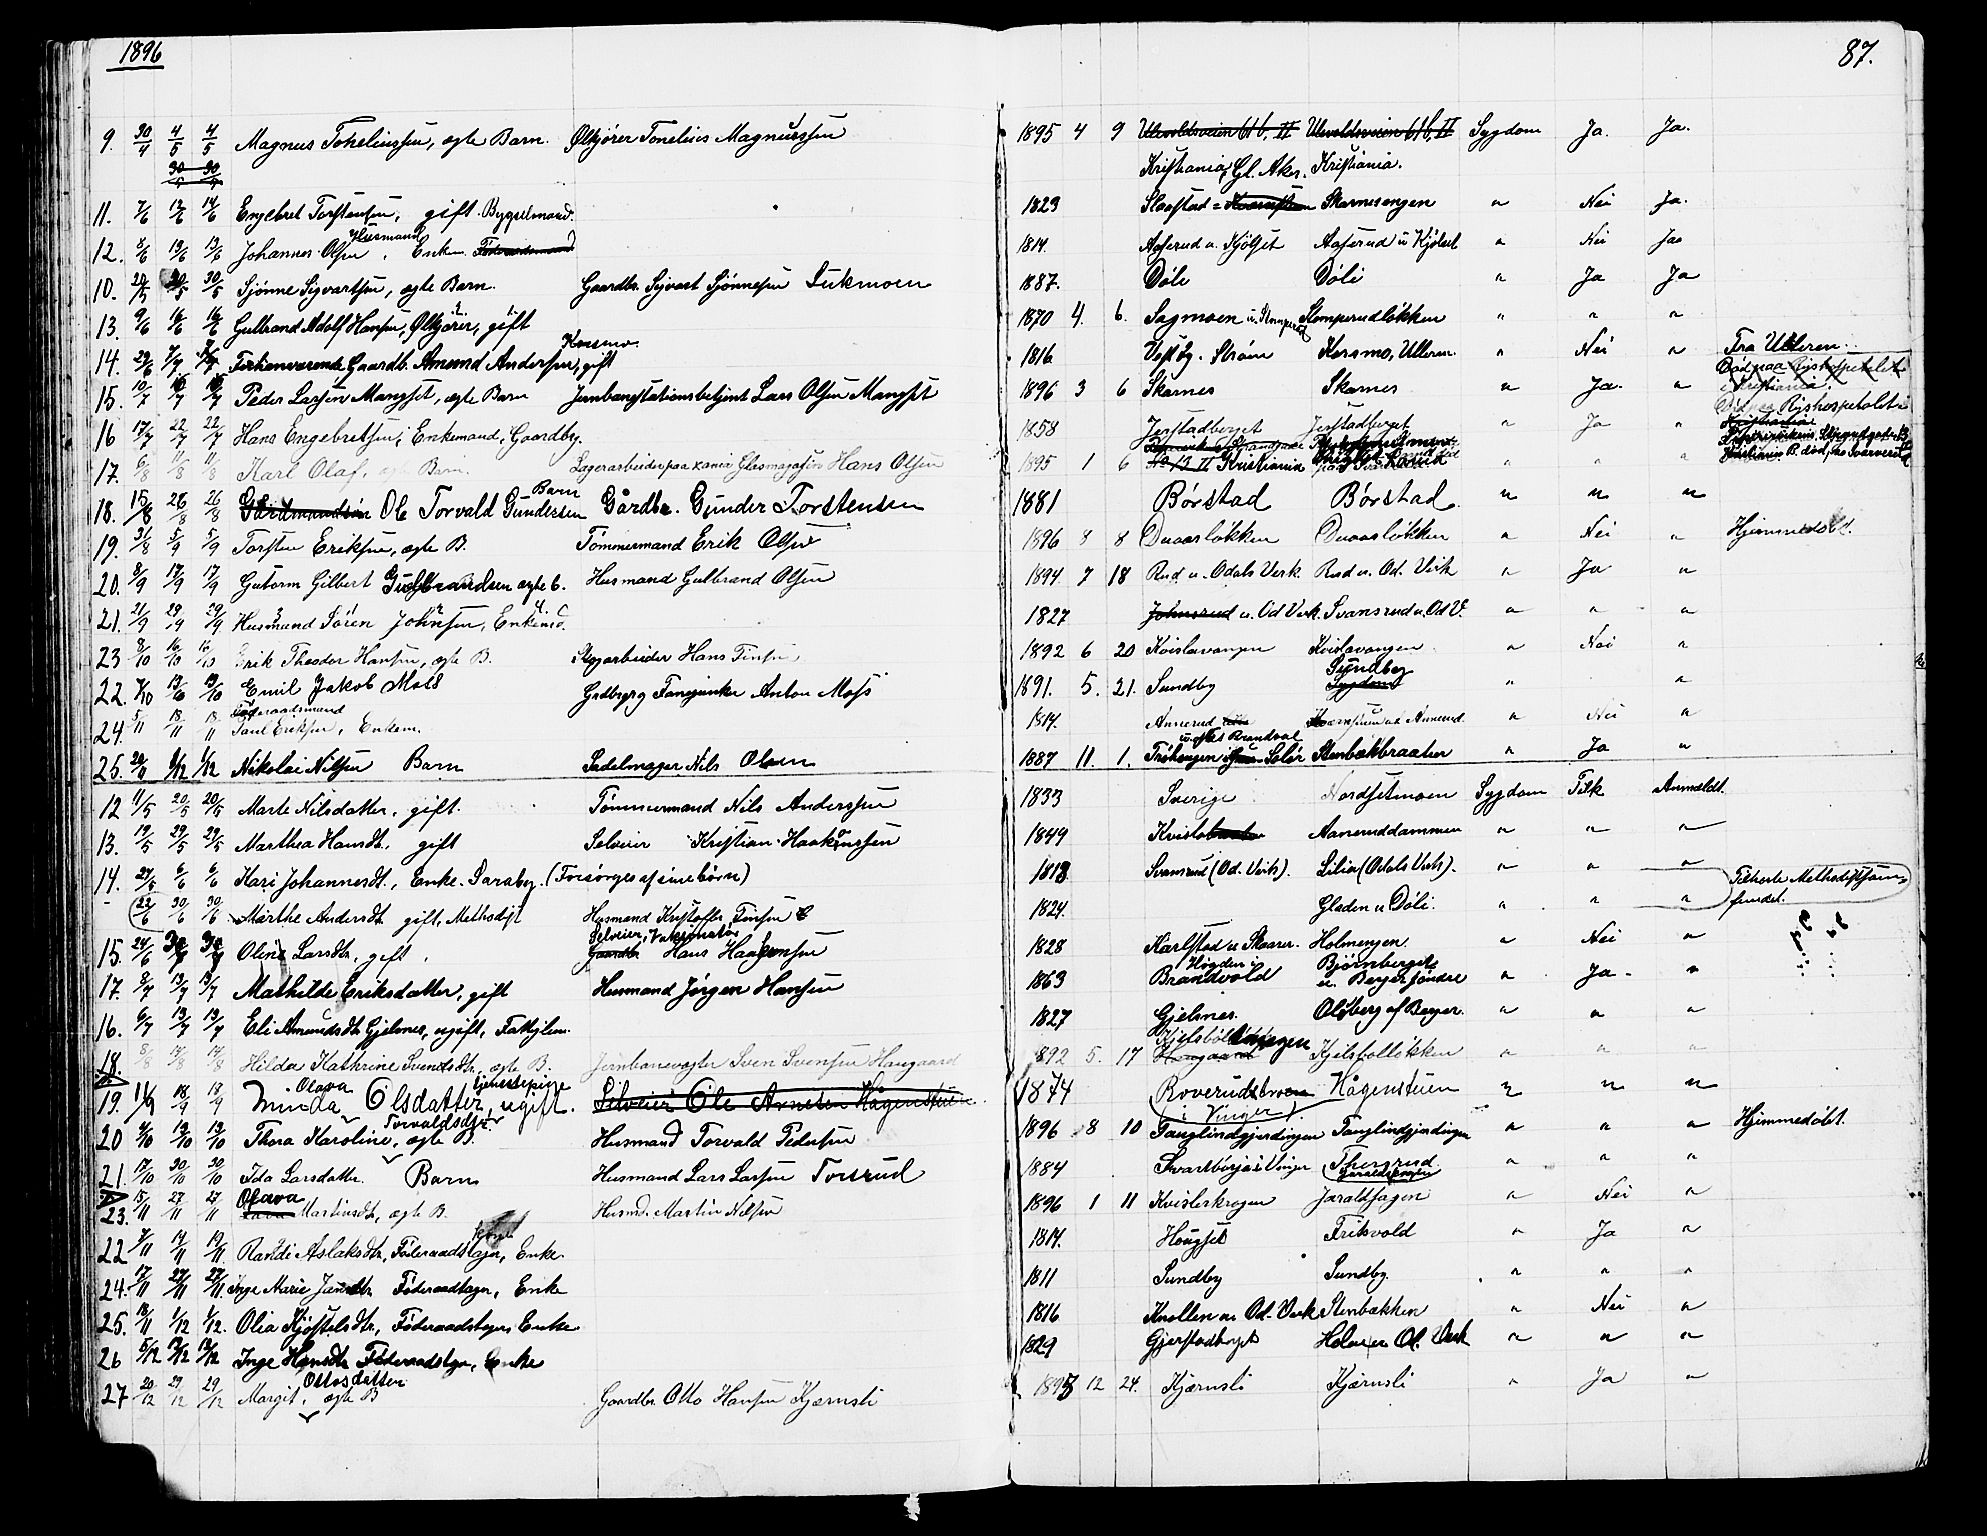 1896
87.
9. 30/4 4/5 4/5 Magnus Toheliussen, ægte Barn. Ølkjører Tonelius Magnussen 1895 4 9 Ulevoldsveien 61b, II Ulevoldsveien 61b, II Sygdom Ja. Ja.
30 30 Kristiania, Gl. Aker. Kristiania.
11. 7/6 12/6 14/6 Engebret Torstensen, gift. Bygselmand. 1823 Slaastad Skarnesengen " Nei Ja.
12. 8/6 13/6 13/6 Johannes Olsen, Husmand Enkem. Føderaadsmand 1814. Aaserud u. Kjølset Aaserud u Kjølset " Nei Ja
10. 30/5 30/5 Sjønne Sigvartsen, ægte Barn. Gaardbr. Sigvart Sjønnesen Sukmoen 1887. Döli Döli " Ja Ja
13. 9/6 16/6 16/6 Gulbrand Adolf Hansen, Ølkjører, gift 1870 4. 6. Sagmoen u. Stomperud Stomperudløkken " " "
14. 29/6 7/7 Forhenværende Gaardb. Amund Andersen, Korsmo gift 1816 Strøm Korsmo, Ulleren. " Nei " Fra Ulleren.
15. 10/7 16/7 16/7 Peder Larsen Mangset, ægte Barn Jernbanestationsbetjent Lars Olsen Mangset 1896 3 6 Skarnes Skarnes " Ja. " Død paa Rigshospitalet i Kristiania.
16 17/7 22/7 22/7 Hans Engebretsen, Enkemand, Gaardbr. 1858 Jerstadberget Jerstadberget " Ja " Rigshospitalet i Kristiania
17. 6/8 11/8 11/8 Karl Olaf, ægte Barn. Lagerarbeider paa Xania Glasmagasin Hans Olsen 1895 1 6 No 13 II Kristiania " " "
18. 15/8 26/8 26/8 Gårdmandsön Ole Torvald Gundersen Barn Gårdbr. Gunder Torstensen 1881 Börstad Börstad " " "
19. 31/8 5/9 5/9 Torsten Eriksen, ægte B. Tømmermand Erik Olsen 1896 8 8 Duaasløkken Duaasløkken " Nei " Hjemmedøbt.
20. 8/9 17/9 17/9 Gutorm Gilbert Gulbrandsen ægte b. Husmand Gulbrand Olsen 1894 7 18 Rud u. Odals Verk. Rud u. Od. Verk " Ja "
21. 21/9 29/9 29/9 Husmand Søren Johnsen, Enkemd. 1827 Johnsrud u. Od Verk. Svansrud u. Od V. " " "
23 8/10 16/10 16/10 Erik Theodor Hansen, ægte B. Slagarbeider Hans Finsen 1892 6 20 Kvislavangen Kvislavangen " Nei "
22. 7/10 13/10 13/10 Emil Jakob Moss Grdbrgrg Fanejunker Anton Moss 1891. 5. 21. Sundby Sundby Sygdom " "
24. 5/11 18/11 18/11 Føderaadsmand Paul Eriksen, Enkem. 1814. Annerud Kværnstuen u. Annerud. " Nei "
25. 1/12 1/12 Nikolai Nilsen Barn Sadelmager Nils Olsen 1887 11. 1. Brandval Solör Stenbækbraaten " Ja "
12 11/5 20/5 20/5 Marte Nilsdatter, gift. Tömmermand Nils Anderssen 1833 Sverige Nordsetmoen Sygdom Tilk Anmeldt.
13. 19/5 29/5 29/5 Marthea Hansdt., gift Selveier Kristian Haakonssen 1849 Aaneruddammen " " "
14. 27/5 6/6 6/6 Kari Johannesdt., Enke. Saraby. (Forsørges af sine børn) 1818. Svansrud (Od. Verk). Lilia (Odals Verk). " " "
22/6 30/6 30/6 Marthe Andersdt. gift, Methodist Husmand Kristoffer Finsen 1824. Gladen u Döli. " " " Tilhørte Methodistsamfundet.
15. 24/6 Oline Larsdt., gift. Selveier, Vaksinatør Gaardbr Hans Haagensen 1828 Karlstad u Skaarer. Holmengen. " Nei "
17. 8/7 13/7 13/7 Mathilde Eriksdatter, gift Husmand Jörgen Hansen 1863 Høgden i Brandvold Bjørnberget u. Berger søndre " Ja. "
16. 6/7 13/7 13/7 Eli Amundsdt. Gjelsnes, ugift, Fattiglem. 1827 Gjelsnes. Olsberg af Berger. " " "
18. 8/8 14/8 14/8 Hilda Kathrine Svendsdt., ægte B. Jernbanevogter Sven Svensen Haugaard 1892 5. 17 Haugaard Kjelsbølløkken " " "
19. 11/9 18/9 18/9 Minda Olava Olsdatter, Tjenestepige, ugift. Selveier Ole Arnesen Hågenstuen 1874 Roverudsbroen i Vinger Hågenstuen " " "
20 4/10 13/10 13/10 Thora Karoline, Torvaldsdtr. ægte B. Husmand Torvald Pedersen 1896 8 10 Tanglindgjerdingen Tanglindgjerdingen " " " Hjemmedøbt.
21. 17/10 30/10 30/10 Ida Larsdatter. Barn Husmand Lars Larsen Torsrud 1884 Svartborja i Vinger Thorsrud " " "
23. 15/11 27/11 27/11 Olava Martinsdt., ægte B. Husmd. Martin Nilsen 1896 1 11 Kvislerkrogen Jaraldhagen " Nei "
22 3/11 14/11 14/11 Randi Aslaksdt., Føderaadstager, Enke. 1814. Hougset Frikvold " Ja "
24. 17/11 27/11 27/11 Inge Marie Jansdtr. Føderaadtager, Enke 1811 Sundby Sundby. " " "
25. 18/11 1/12 1/12. Olia Kjøstelsdtr, Føderaadstager, Enke 1816 Knollen u. Od. Verk Stenbækken " Nei "
26 5/12 12/12 12/12 Inge Hansdtr. Føderaadstgr, Enke 1829 Gjerstadberget Od. Verk " " "
27 20/12 29/12 29/12 Margit, Ottosdatter ægte B Gaardbr. Otto Hansen Kjærnsli 1895 12 24. Kjærnsli Kjærnsli " Ja "